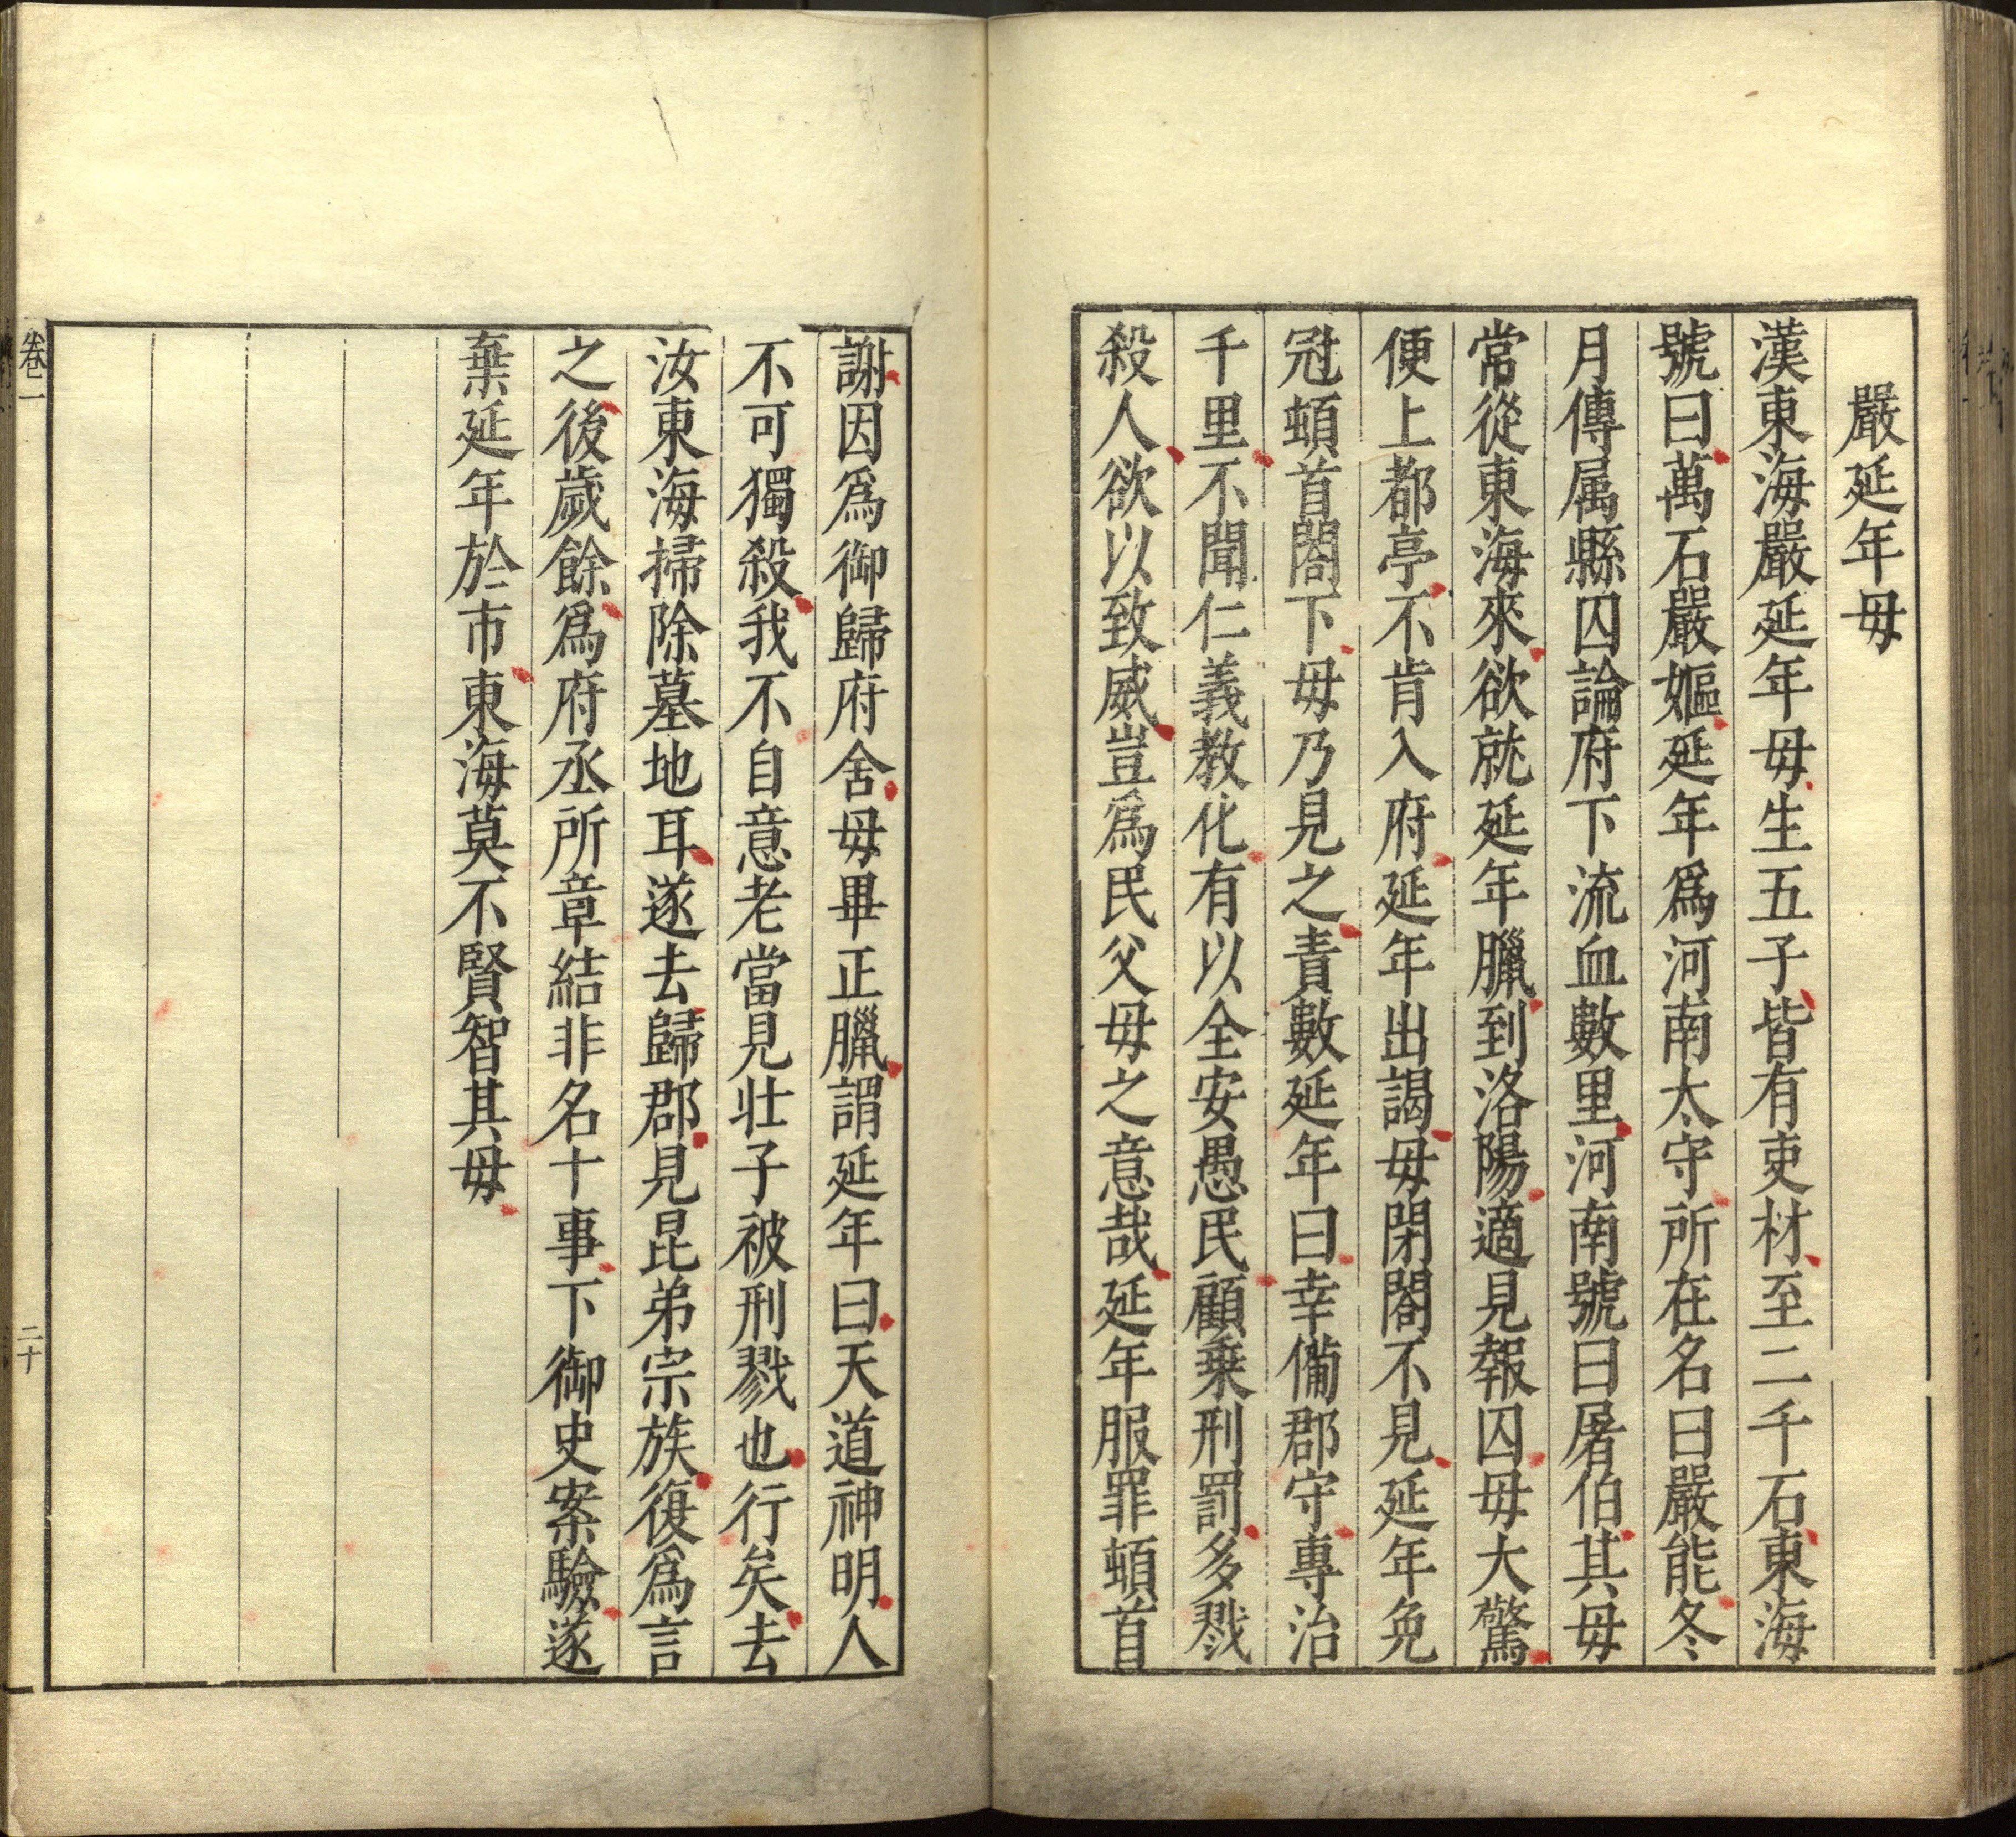 嚴延年母
漢東海嚴延年母生五子皆有吏材至二千石東海
號曰萬石嚴嫗延年爲河南太守所在名曰嚴能冬
月傳属縣囚論府下流血數里河南號曰屠伯其母
常從東海來欲就延年臘到洛陽適見報囚母大驚
便上都亭不肯入府延年出謁母閉閤不見延年免
冠頓首閤下母乃見之責數延年曰幸備郡守專治
千里不聞仁義教化有以全安愚民顧乗刑罰多戮
殺人欲以致威豈爲民父母之意哉延年服罪頓首
謝因爲御歸府舍母畢正臘謂延年曰天道神明人
不可獨殺我不自意老當見壮子被刑戮也行矣去
汝東海掃除墓地耳遂去歸郡見昆弟宗族復爲言
之後歲餘爲府丞所章結非名十事下御史案驗遂
棄延年於市東海莫不賢智其母
卷一
二十